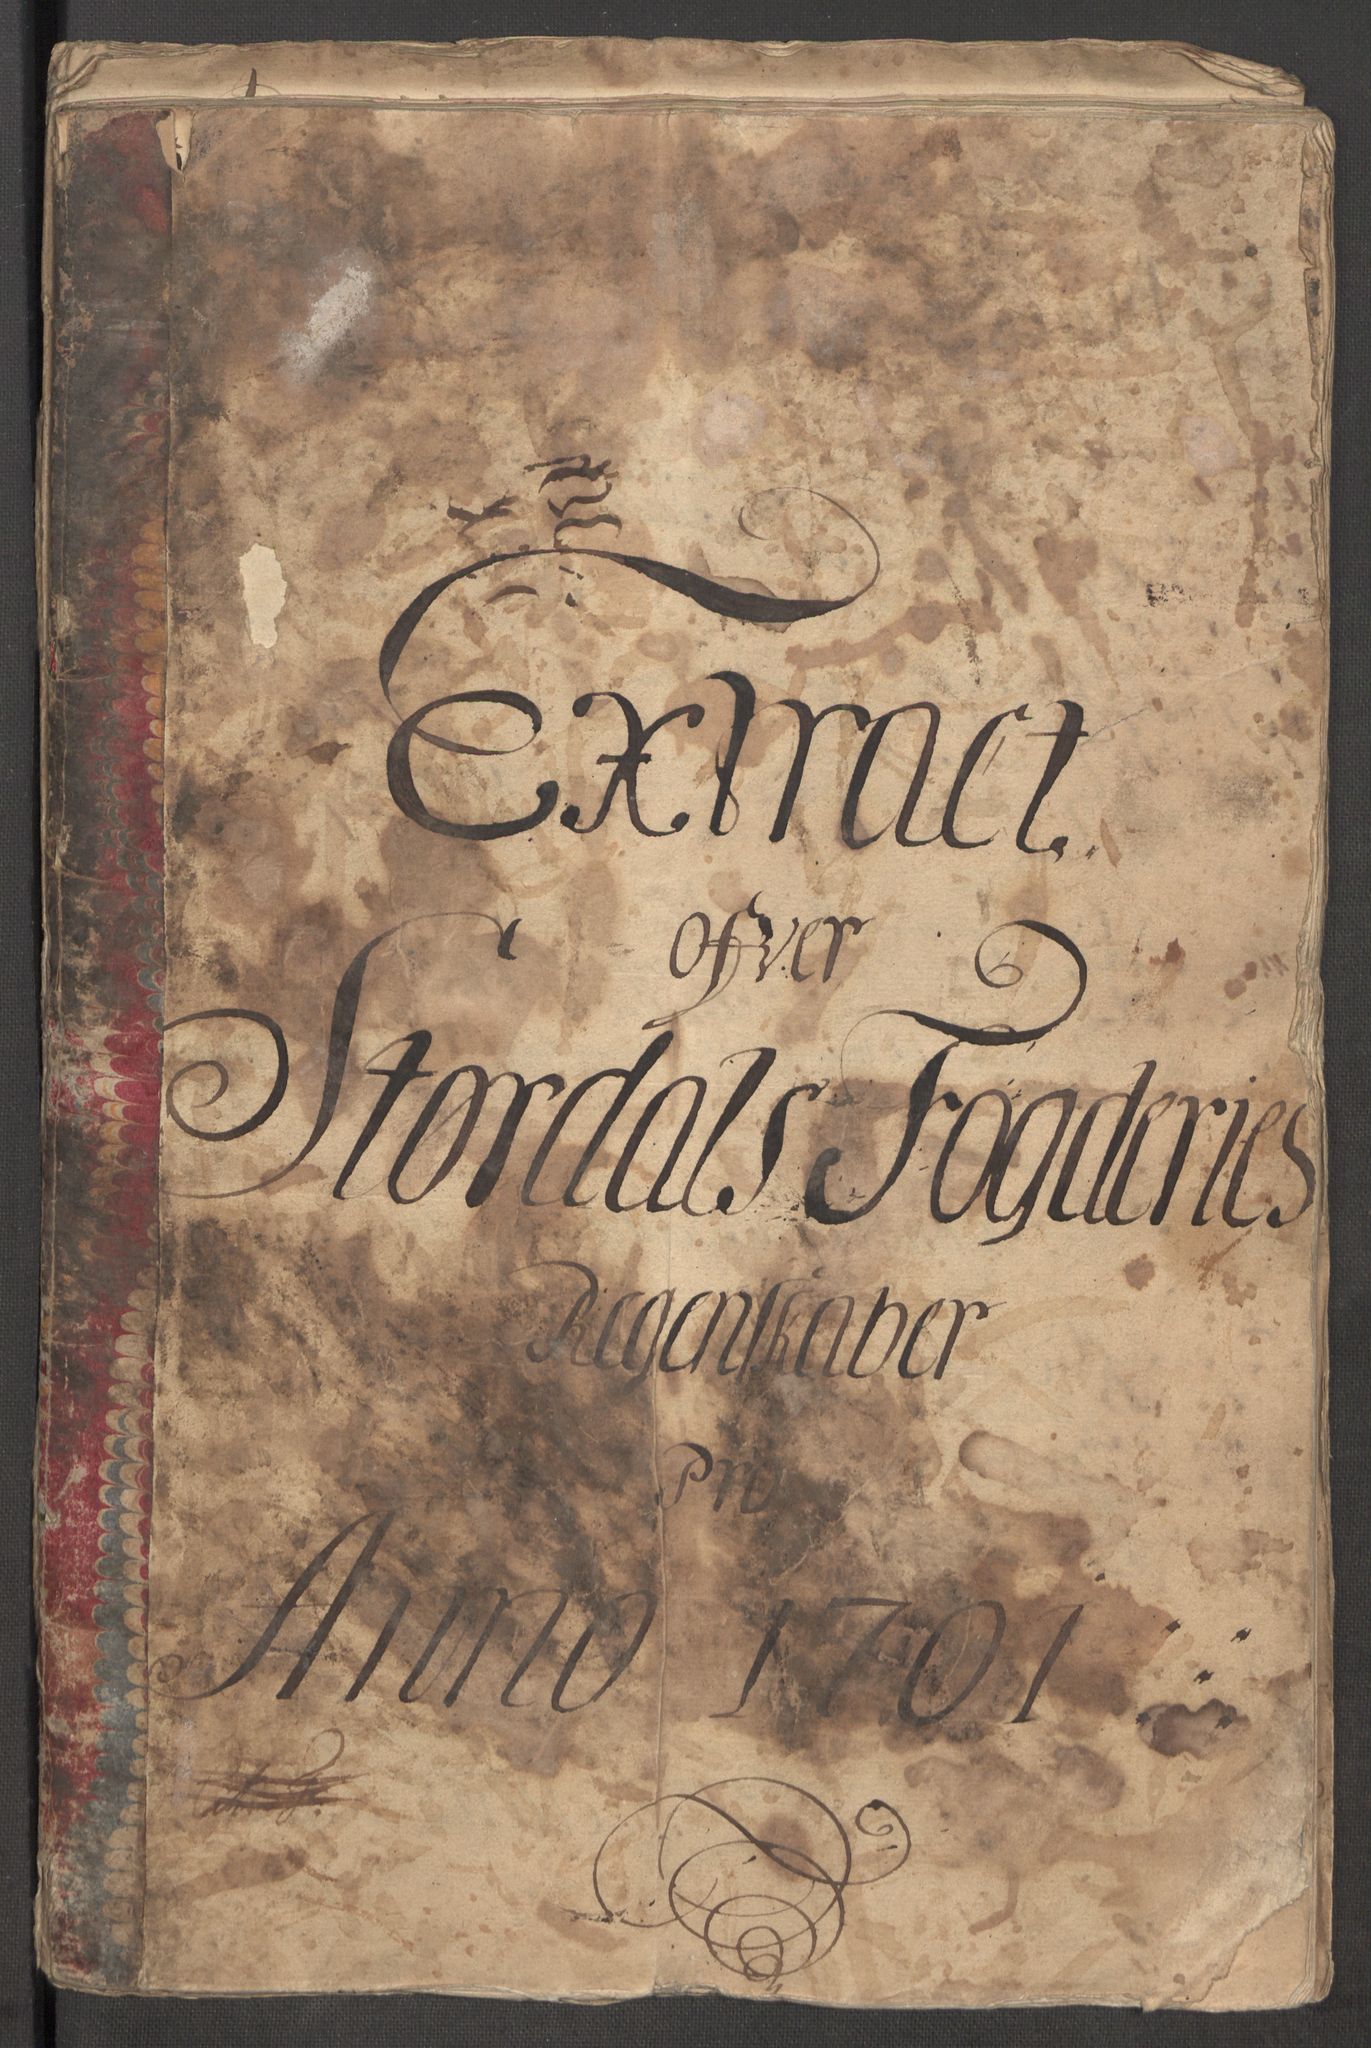 Extract
ofver
Størdals Fogderies
Regenskaber
pro
Anno 1701